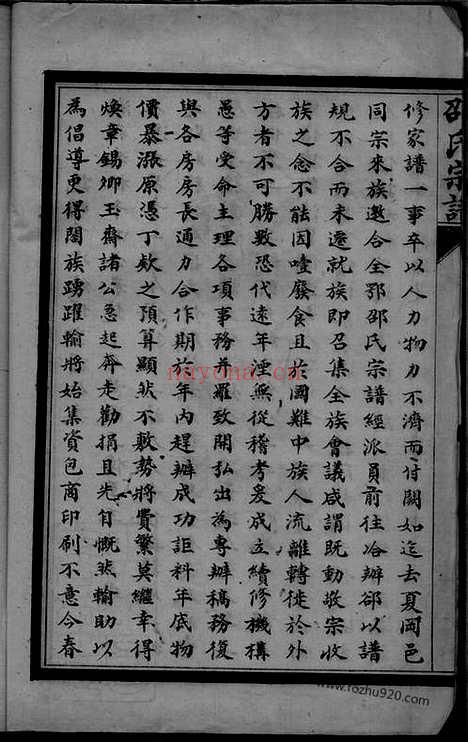 邵氏宗譜
修家譜一事卒以人力物力不濟而付闕如迄去夏岡邑
同宗來族邀合全鄂邵氏宗譜經派員前往洽辦郤以譜
規不合而未遷就族即召集全族會議咸謂既動敬宗收
族之念不能因噎發食且於國難中族人流離轉徙於外
方者不可勝數恐代遠年湮無從稽考爰成立續修機構
愚等受命主理各項事務并羅致開弘出為專辦稿務復
與各房房長通力合作期於年內趕辦成功詎料年底物
價暴漲原憑丁欵之預算顯然不敷勢將費繁莫繼幸得
煥章錫卿玉齋諸公急起奔走勸捐且先自慨然輸助以
為倡導更得闔族踴躍輸將始集資包商印刷不意今春
nayona.cn
www.fozhu920.com